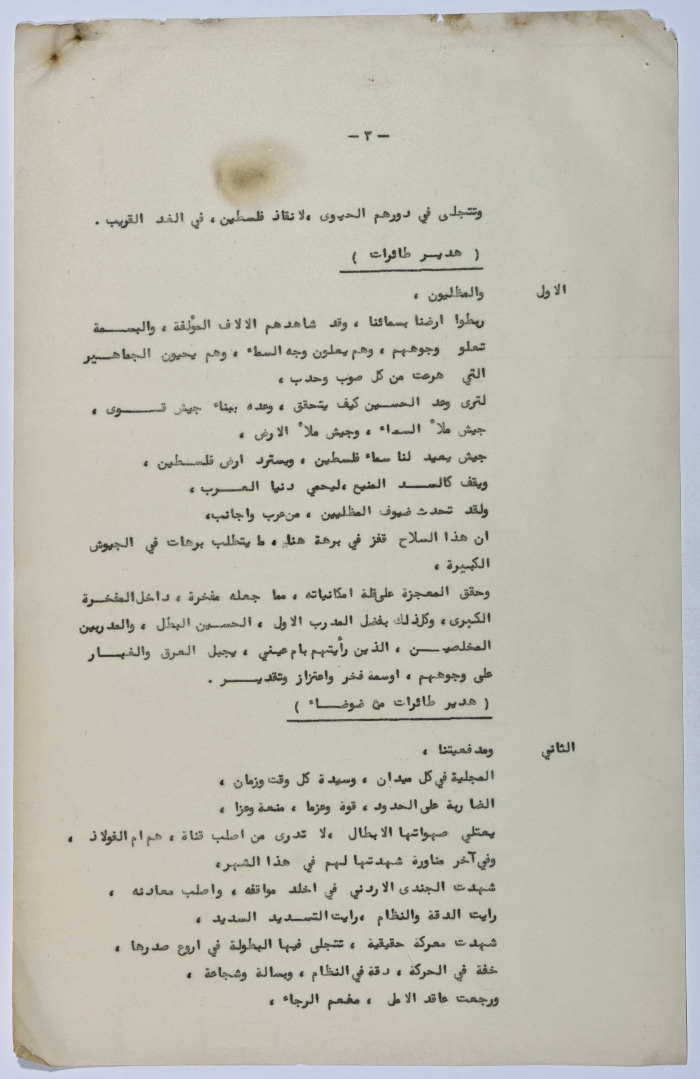 - ٣ -
وتتجلى في دورهم الحيوى ،لانقاذ فلسطين ، في الغد القريب .
( هديـر طائرات )
الاول والمظليون ،
ربطوا ارضنا بسمائنا ، وقد شاهدهم الالاف المؤلفة ، والبســمة
تعلو وجوههم ، وهم يعلون وجه السماء ، وهم يحيون الجماهــير
التي هرعت من كل صوب وحدب ،
لترى وعد الحسين كيف يتحقق ، وعده ببناء جيش قــوى ،
جيش ملأ السماء ، وجيش ملأ الارض ،
جيش يعيد لنا سماء فلسطين ، ويسترد ارض فلسطين ،
ويقف كالســد المنيع ،ليحمي دنيا العــرب ،
ولقد تحدث ضيوف المظليين ، من عرب واجانب،
ان هذا السلاح قفز في برهة هنا، ما يتطلب برهات في الجيوش
الكبيرة ،
وحقق المعجزة على قلة امكانياته ، مما جعله مفخرة ، داخل المفخـرة
الكبرى ، وكل ذلك بفضل المدرب الاول ، الحسين البطل ، والمدربين
المخلصيــن ، الذين رأيتهم بام عيني ، يجبل العرق والغبــار
على وجوههم ، اوسمة فخر واعتزاز وتقديــر .
( هدير طائرات مع ضوضـاء )
الثاني ومدفعيتنا ،
المجلية في كل ميدان ، وسيدة كل وقت وزمان ،
الضاربة على الحدود ، قوة وعزما ، منعة وعزا ،
يعتلي صهواتها الابطال ،لا تدرى من اصلب قناة ، هم ام الفولاذ ،
وفي آخر مناورة شهدتها لهم في هذا الشهر،
شهدت الجندى الاردني في اخلد مواقفه ، واصلب معادنه ،
رايت الدقة والنظام ،رايت التسـديد السديد ،
شهدت معركة حقيقية ، تتجلى فيها البطولة في اروع صدرها ،
خفة في الحركة ، دقة في النظام ، وبسالة وشجاعة ،
ورجعت عاقد الامل ، مفعم الرجاء ،